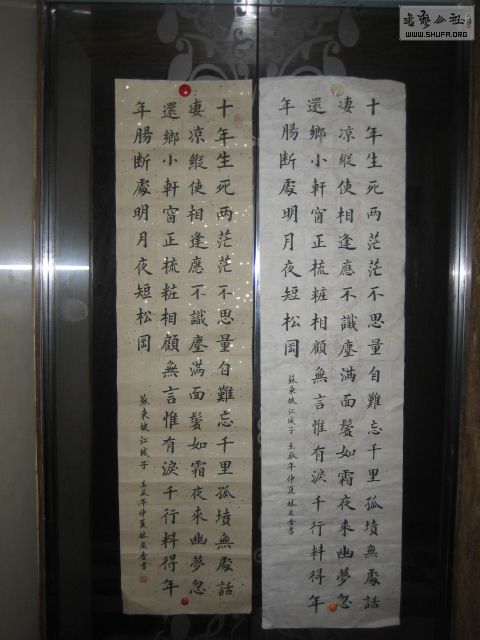 書藝公社
WWW.SHUFA.ORG
十年生死两茫茫不思量自難忘千里孤墳無處話
凄凉縱使相逢應不識塵滿面鬢如霜夜來幽夢忽
還鄉小軒窗正梳粧相顧無言惟有淚千行料得年
年腸断處明月夜短松岡
蘇東坡江城子 壬辰年仲夏林香書
十年生死两茫茫不思量自難忘千里孤墳無處話
凄凉縱使相逢應不識塵滿面鬢如霜夜來幽夢忽
還鄉小軒窗正梳粧相顧無言惟有淚千行料得年
年腸断處明月夜短松岡
蘇東坡江城子 壬辰年仲夏林香書